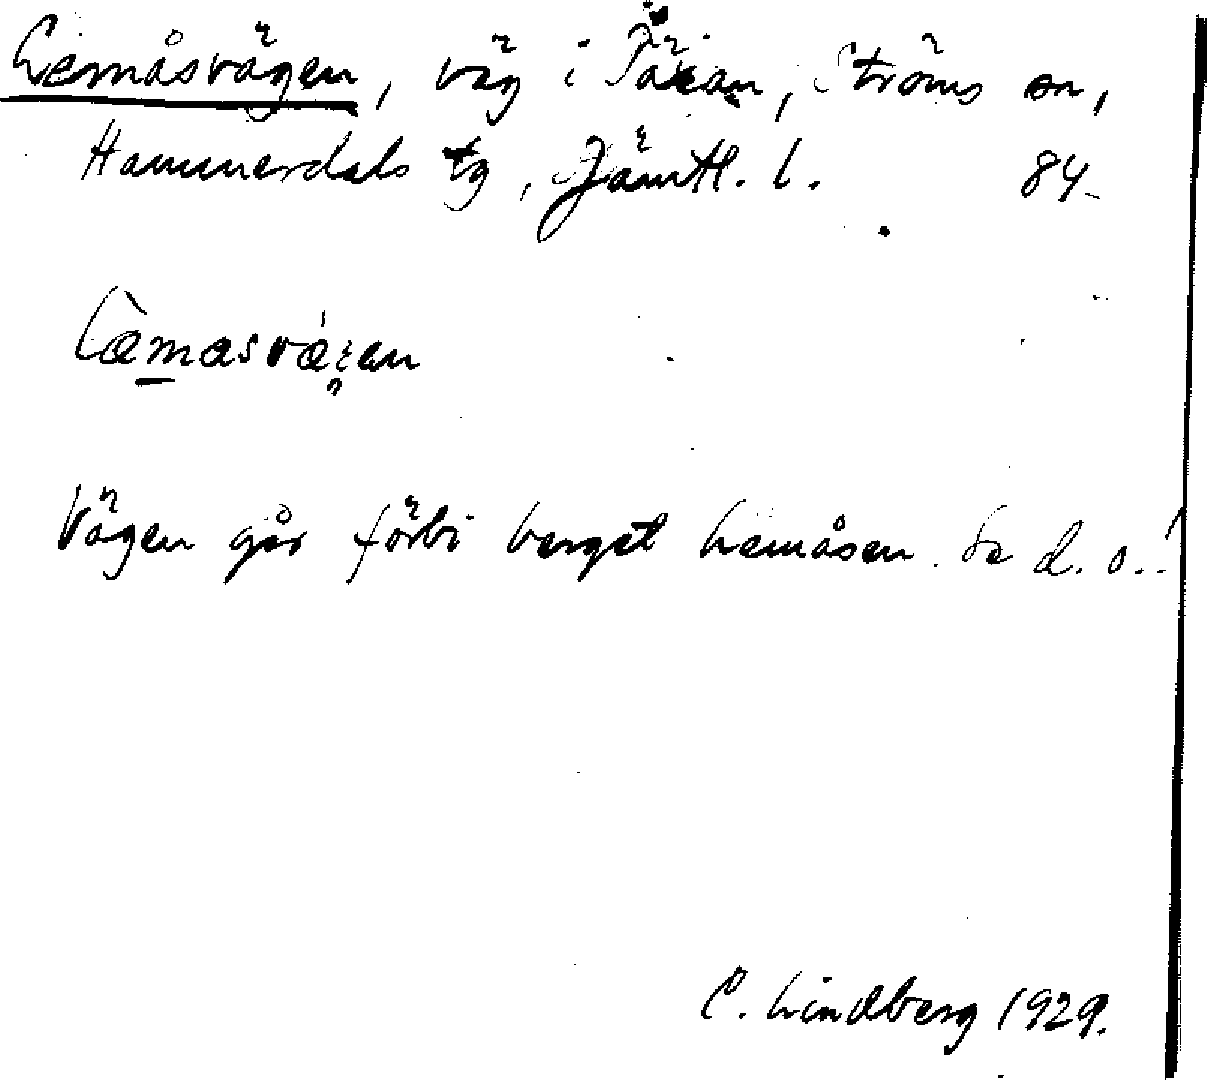 Lemåsvägen, väg i Täxan, Ströms sn,
Hammerdals tg, Jämtl. l. 84
Læmasvægan
Vägen går förbi berget Lemåsen. Se d. o.!
C. Lindberg 1929.